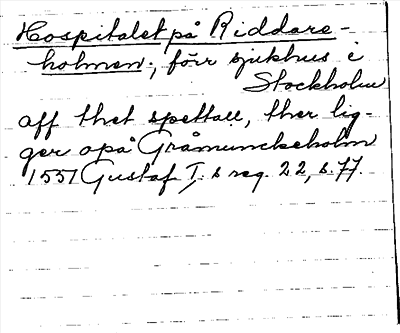 Hospitalet på Riddare-
holmen; förr sjukhus i
Stockholm
aff thet spettall, ther lig-
ger opå Gråmunckeholm
1551 Gustaf I:s reg. 22, s. 77.